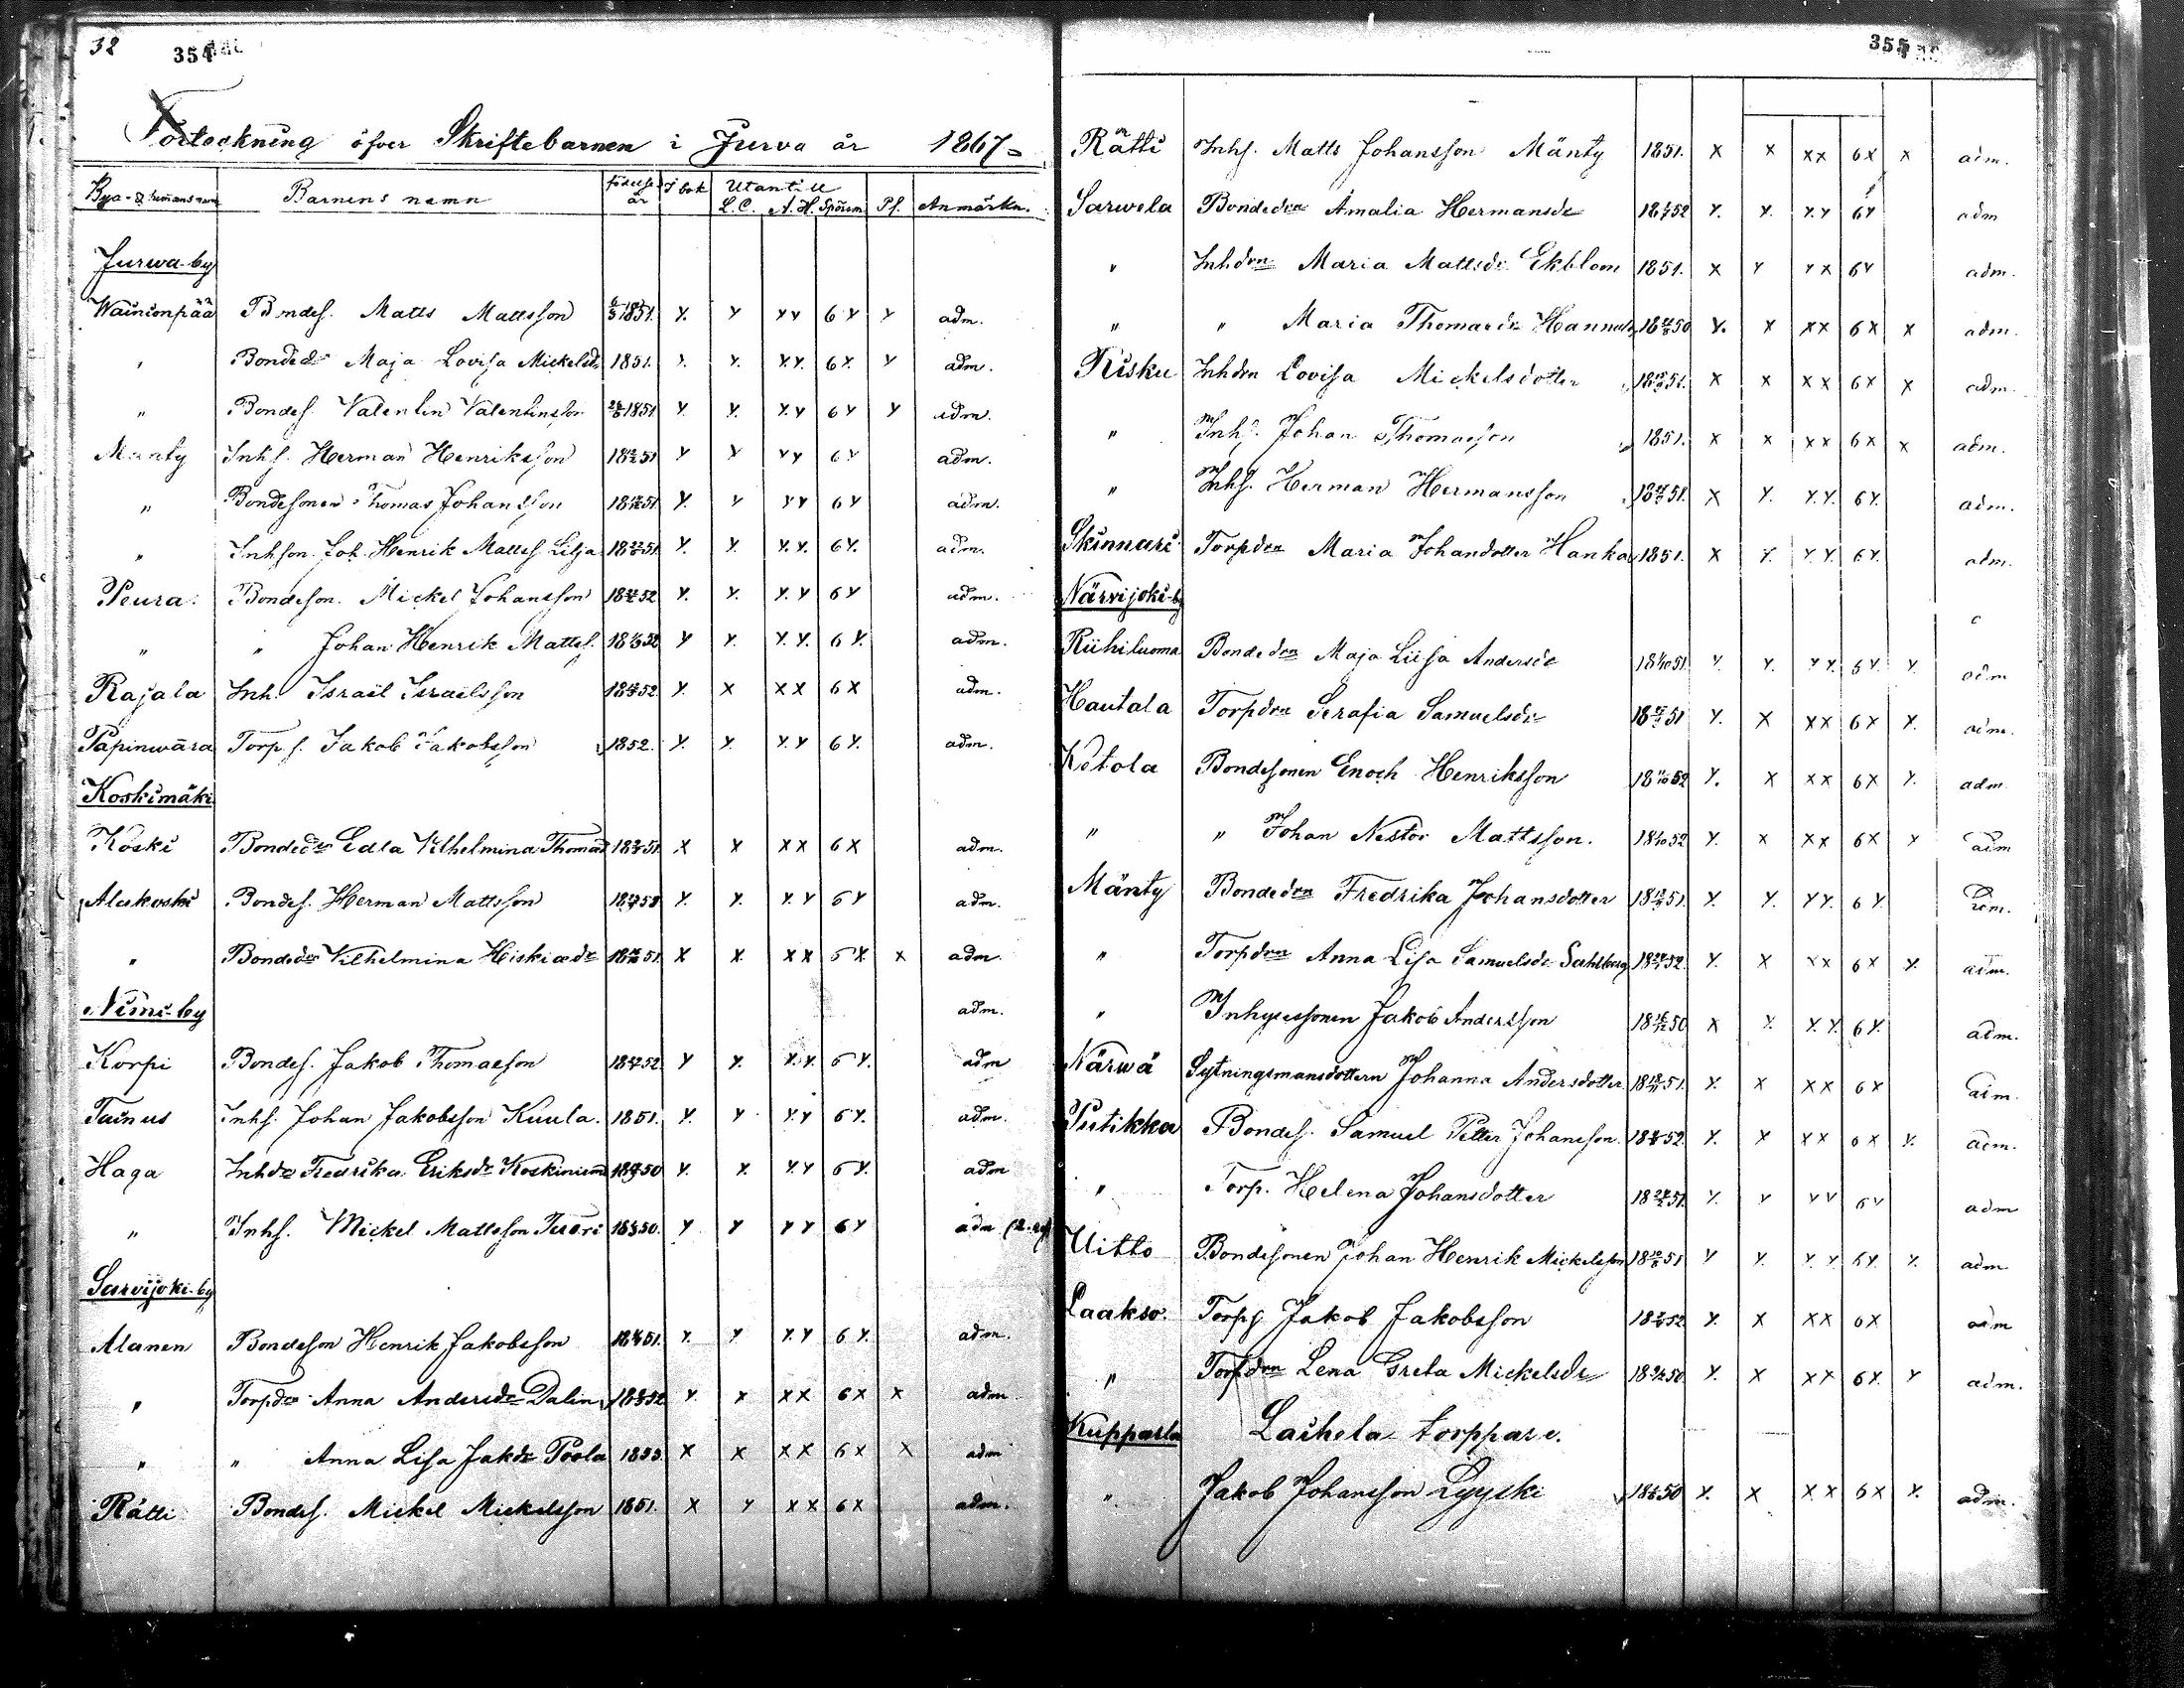 32
354
Förteckning öfver Skriftebarnen i Jurva år 1867
Bya- & hemmans namn Barnens namn födelse år I bok Utantill L.C. A.H. Spörsm. Pf. Anmärkn.
Jurwa-by
Wäinionpää Bondes. Matts Mattsson 1851. x x xx 6x x adm.
" Bonded. Maja Lovisa Mickelsdr 1851. x x. x.x. 6x. x adm.
" Bondes. Valentin Valentinsson 1851 x x. x.x 6x x adm.
Mänty Inhs. Herman Henriksson 1851 x x xx 6x adm.
" Bondesonen Thomas Johansson 1851. x. x xx 6x adm.
" Inhson Joh. Henrik Matts. Lilja 1851. x. x. x.x. 6x. adm.
Peura. Bondeson. Mickel Johansson 1852 x. x. x.x 6x adm.
" " Johan Henrik Matts. 1852 x x. x.x. 6x. adm.
Rajala Inh. Israël Israëlsson 1852. x. x xx 6x adm.
Papinwara Torp.s. Jakob Jakobsson 1852. x. x. x.x 6x. adm.
Koskimäki
Koski Bondedr Edla Vilhelmina Thomasd 1851. x x xx 6x adm.
Alakoski Bondes. Herman Mattsson x. x. x.x 6x adm.
" Bondedr Vilhelmina Hiskiaedr 1851. x x xx 6x x adm.
Niemi-by adm.
Korpi Bondes. Jakob Thomasson 1852. x x. x.x. 6x. adm
Tainus Inhs. Johan Jakobsson Kuula. 1851. x. x x.x 6x. adm.
Haga Inhdr Fredrika Eriksdr Koskiniemi 1850 x. x. x.x 6x. adm
" Inhs. Mickel Mattsson Tuori 1850. x x xx 6x adm
Sarvijoki-by
Alanen Bondeson Henrik Jakobsson 1851. x. x x.x 6x. adm.
" Torpdr Anna Andersdr Dalin 1852 x. x xx 6x x adm.
" " Anna Lisa Jakdr Poola x x xx 6x x adm
Rätti Bondes. Mickel Mickelsson 1851. x x xx 6x adm.
355
Rätti Inhs. Matts Johansson Mänty 1851. x x xx 6x x adm.
Sarwela Bondedra Amalia Hermansdr 1852 x. x. x.x 6x adm
" Inhdrn Maria Mattsdr Ekblom 1851. x x xx 6x adm.
" " Maria Thomasdr 1850 x. x xx 6x x adm.
Risku Inhdrn Lovisa Mickelsdotter 1851. x x xx 6x x adm.
" Inhs. Johan Thomasson 1851. x x xx 6x x adm.
" Inhs. Herman Hermansson 1851. x x. x.x. 6x. adm.
Skinnari Torpdrn Maria Johandotter Hanka 1851. x x. x x. 6x. adm.
Närvijoki-by
Riihiluoma Bondedrn Maja Liisa Andersdr 1851 x. x. x x. 6x. x. adm
Hautala Torpdrn Serafia Samuelsdr 1851 x. x xx 6x x. adm.
Kotola Bondesonen Enoch Henriksson 1852 x. x xx 6x x. adm.
" " Johan Nestor Mattsson. 1852 x. x xx 6x x adm
Mänty Bondedrn Fredrika Johansdotter 1851. x. x. xx. 6x. adm.
" Torpdrn Anna Lisa Samuelsdr Sahlberg 1852. x. x xx 6x x. adm.
" Inhysessonen Jakob Andersson 1850 x x. x.x. 6x. adm.
Närwä Sytningsmansdottern Johanna Andersdotter 1851. x. x xx 6x adm.
Putikka Bondes. Samuel Petter Johansson. 1852. x. x xx 6x x. adm.
" Torp. Helena Johansdotter 1851. x. x xx 6x adm
Uitto Bondesonen Johan Henrik Mickelsson 1851 x x. x x. 6x. x. adm
Laakso. Torps Jakob Jakobsson 1852. x. x xx 6x adm
" Torpdrn Lena Greta Mickelsdr 1850 x. x xx 6x. x adm.
Kupparla Laihela torppare.
" Jakob Johansson Lyyski 1850 x. x xx 6x x. adm.